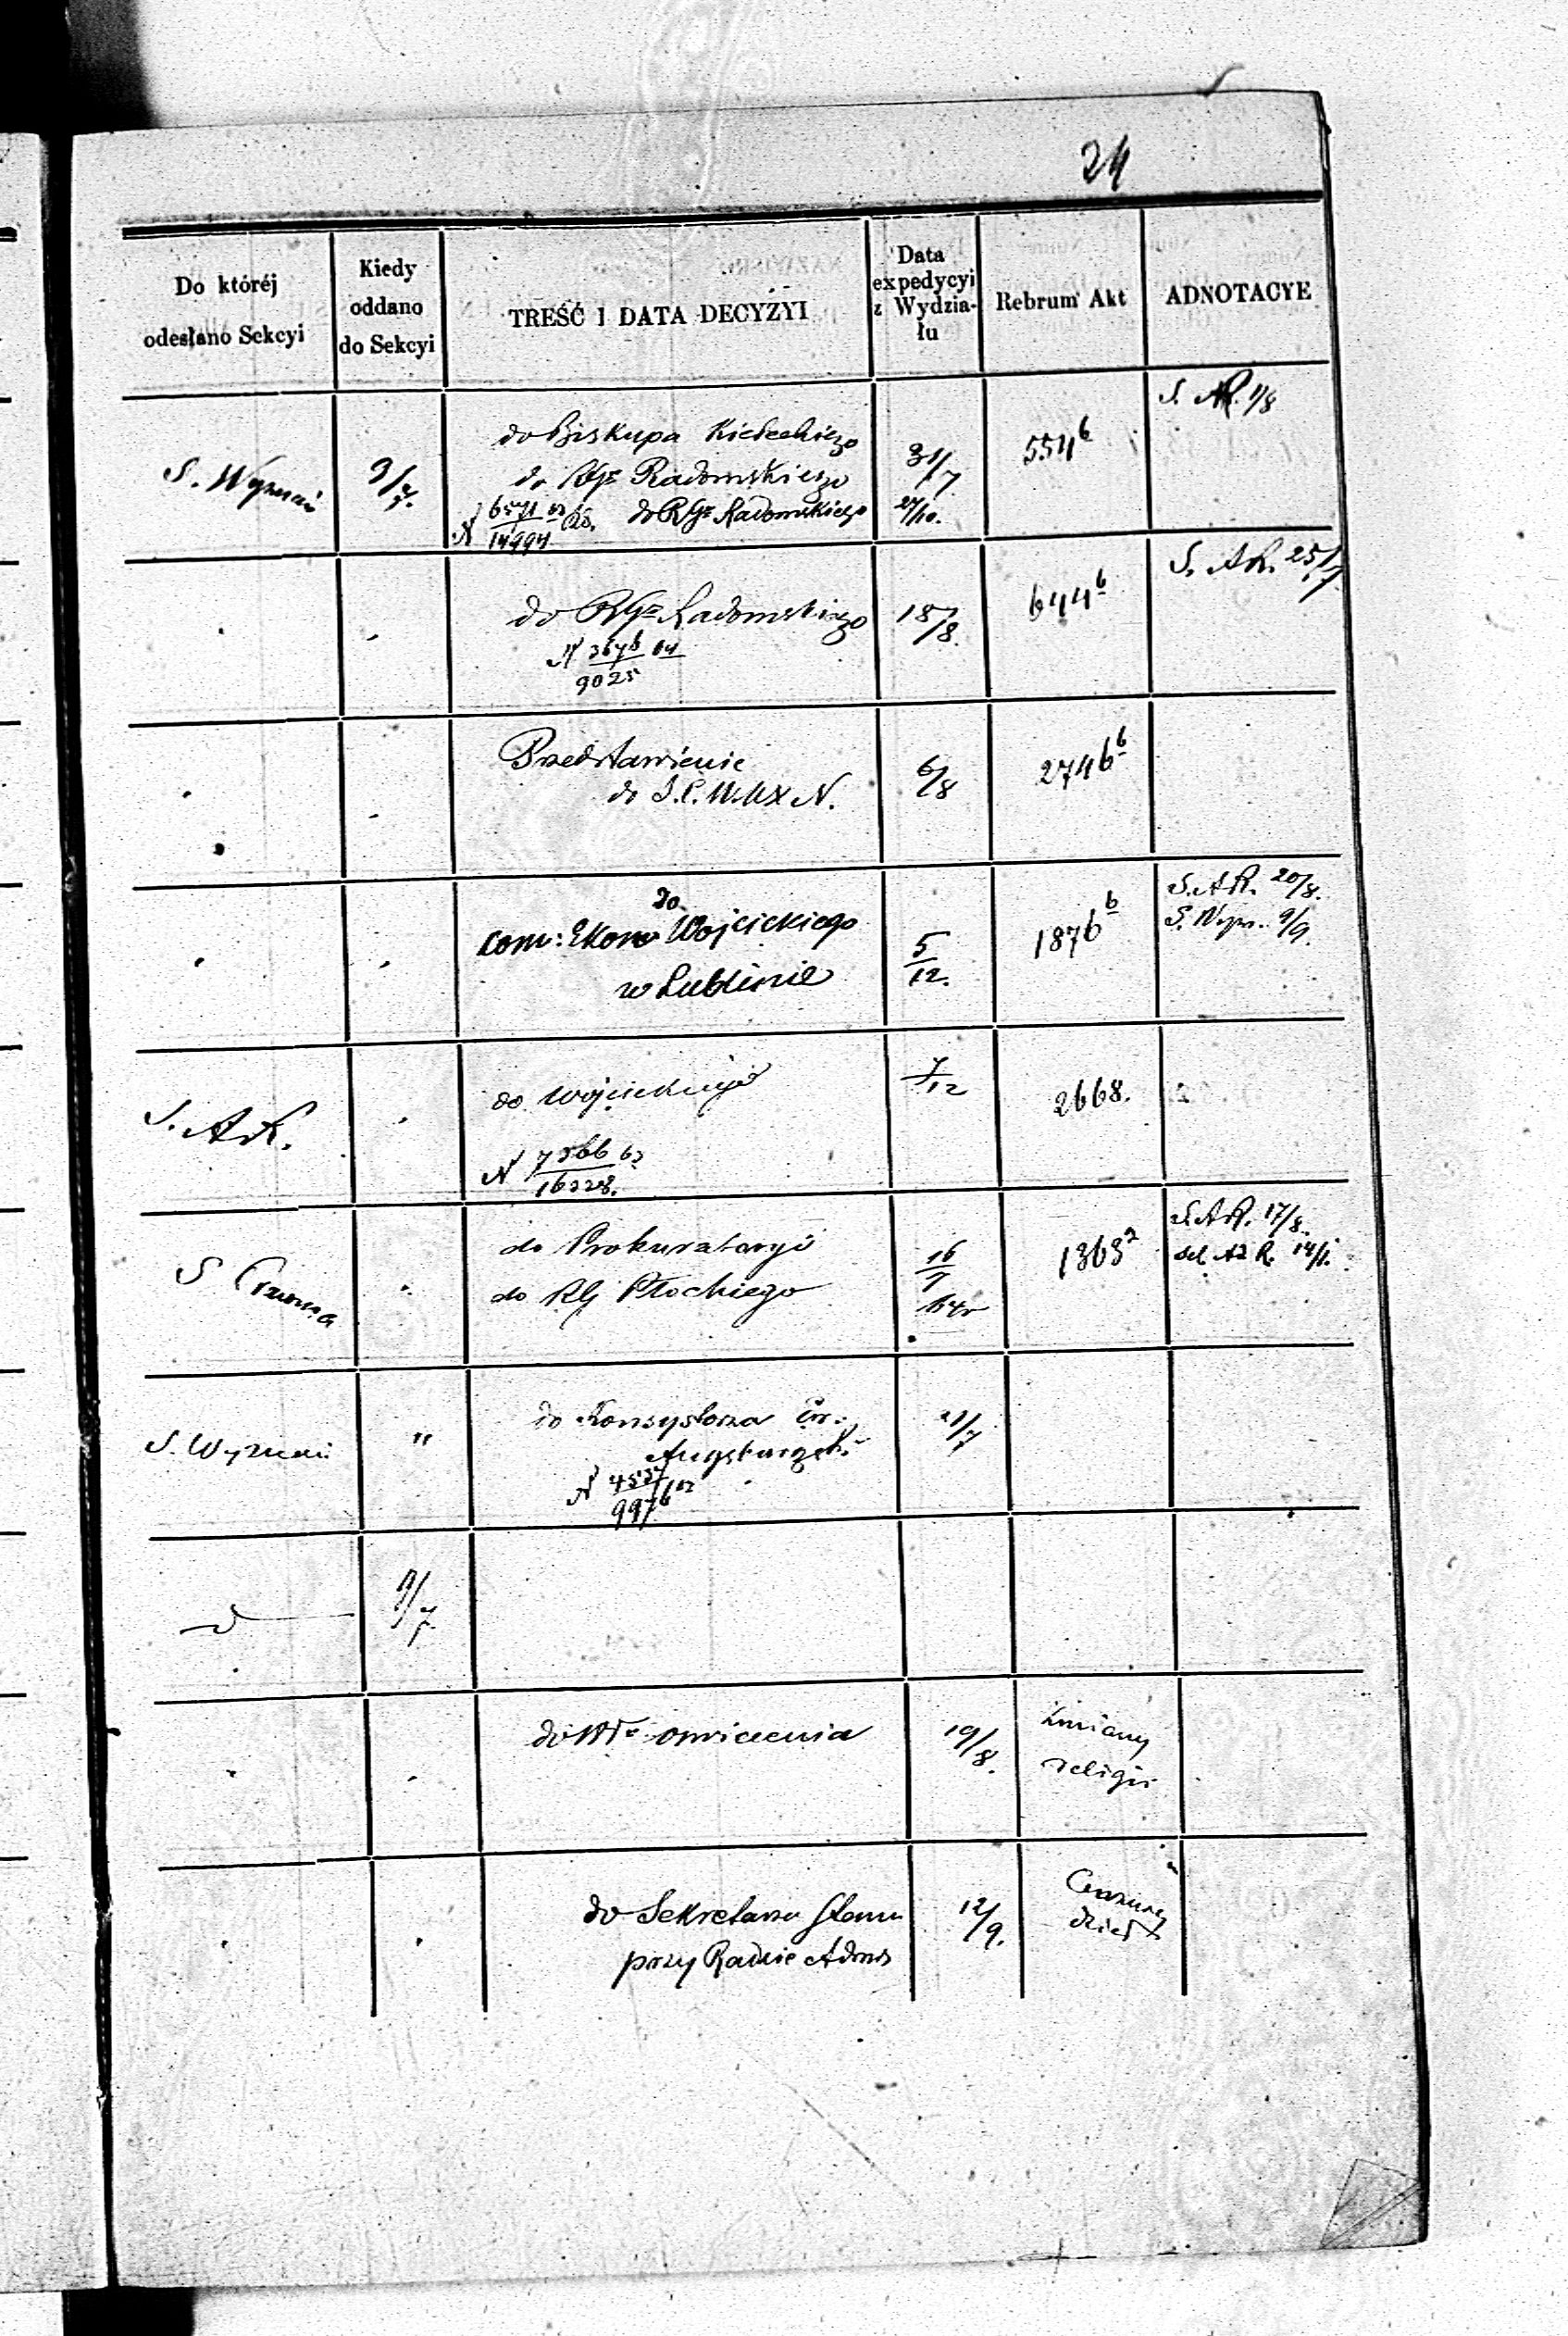 24
Do któréj
odesłano Sekcyi
Kiedy
oddano
do Sekcyi
TREŚĆ I DATA DECYZYI
Data
expedycyi
z Wydzia-
łu
Rebrum Akt
ADNOTACYE
S. Wyznań
9/7.
do Biskupa Kieleckiego
do RGo Radomskiego
N 6571/14994 do RGo Radomskiego
31/7
27/10.
554 b
S. AR. 1/8
do RGo Radomskiego
N 3676/9025 64
18/8.
644 b
S. AR. 25/7
Przedstawienie
do J.C.W.WX N.
6/8
2746 b
do
Kom: Ekon Wojcickiego
w Lublinie
5/12.
1876 b
S. AR. 20/8.
S. Wyzn. 9/9.
S. AR.
do Wojcickiego
N 7366/16228. 63
7/12
2668.
S
do Prokuratoryi
do RG Płockiego
16/1
64r
1363
S. AR. 17/8.
14/1.
S. Wyznań
"
do Konsystorza Ew.
Augsburgsk.
N 4537/9976
21/7
d
9/7
do oświecenia
19/8.
zmiany
religii
do Sekretarza Stanu
przy Radzie Admin
12/9.
Cenzury
dzieł